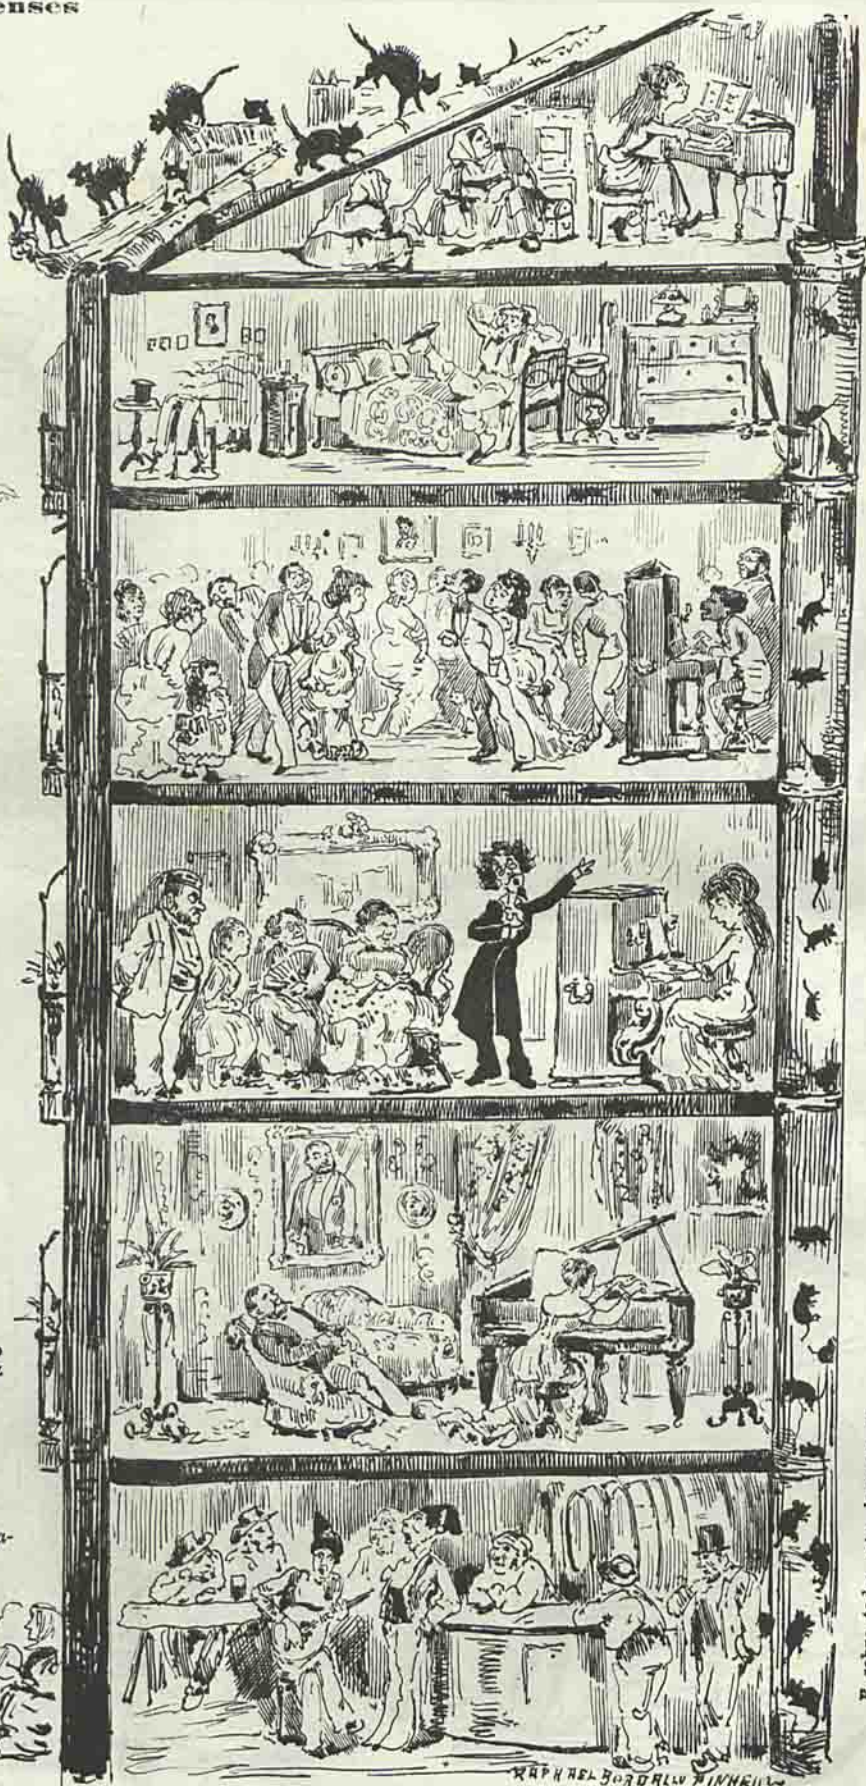 enses
RAPHAEL BORDALLO PINHEIRO